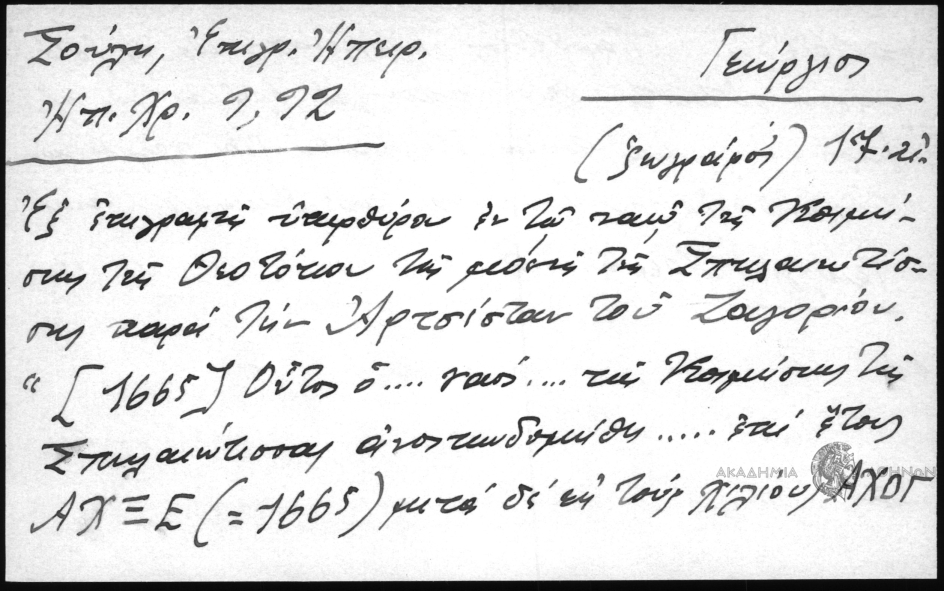 Σούλη, Ἐπιγρ. Ἠπειρ.
Ἠπ. Χρ. 9, 92
Γεώργιος
(ζωγράφος) 17. αἰ.
Ἐξ ἐπιγραφῆς ὑπερθύρου ἐν τῷ ναῷ τῆς Κοιμή-
σεως τῆς Θεοτόκου τῆς μονῆς τῆς Σπηλαιωτίσ-
σης παρὰ τὴν Ἀρτσίσταν τοῦ Ζαγορίου.
"[1665] Οὗτος ὁ.... ναὸς.... τῆς Κοιμήσεως τῆς
Σπηλαιώτισσας ἀνοικωδομήθη..... ἐπὶ ἔτους
ΑΧΞΕ (=1665) μετὰ δὲ εἰ τοὺς χιλίους ΑΧΟΓ
ΑΚΑΔΗΜΙΑ ΑΘΗΝΩΝ